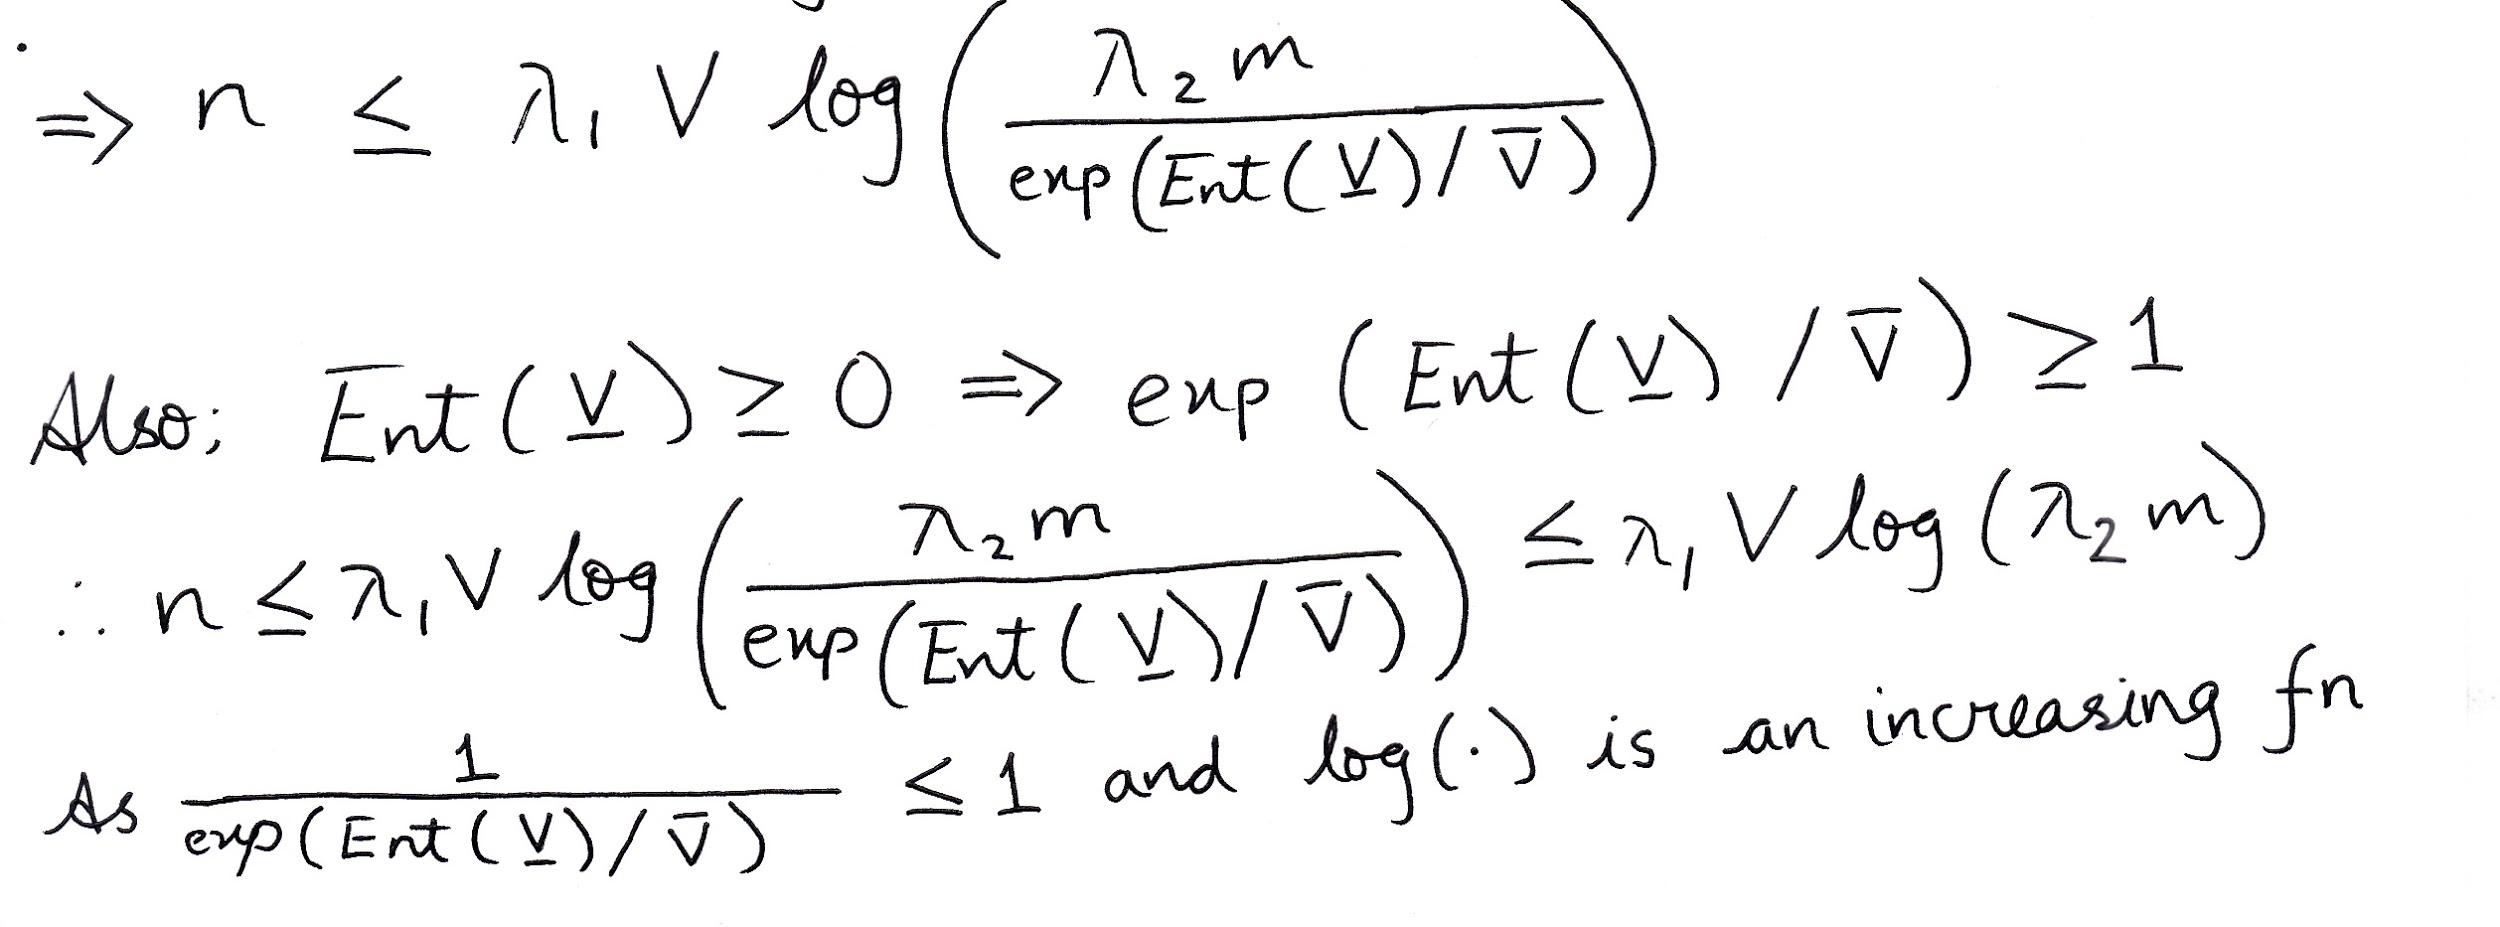 ⇒ n ≤ λ₁ V log( λ₂ m / exp(Ent(V̲)/V̅) )
Also; Ent(V̲) ≥ 0 ⇒ exp(Ent(V̲)/V̅) ≥ 1
∴ n ≤ λ₁ V log( λ₂ m / exp(Ent(V̲)/V̅) ) ≤ λ₁ V log(λ₂ m)
As 1 / exp(Ent(V̲)/V̅) ≤ 1 and log(·) is an increasing fn